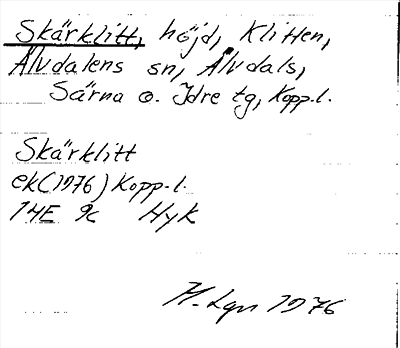 Skärklitt, höjd, Klitten,
Älvdalens sn, Älvdals,
Särna o. Idre tg, Kopp.l.
Skärklitt
ek(1976) Kopp.l.
14E 9c Hyk
H. Lgn 1976